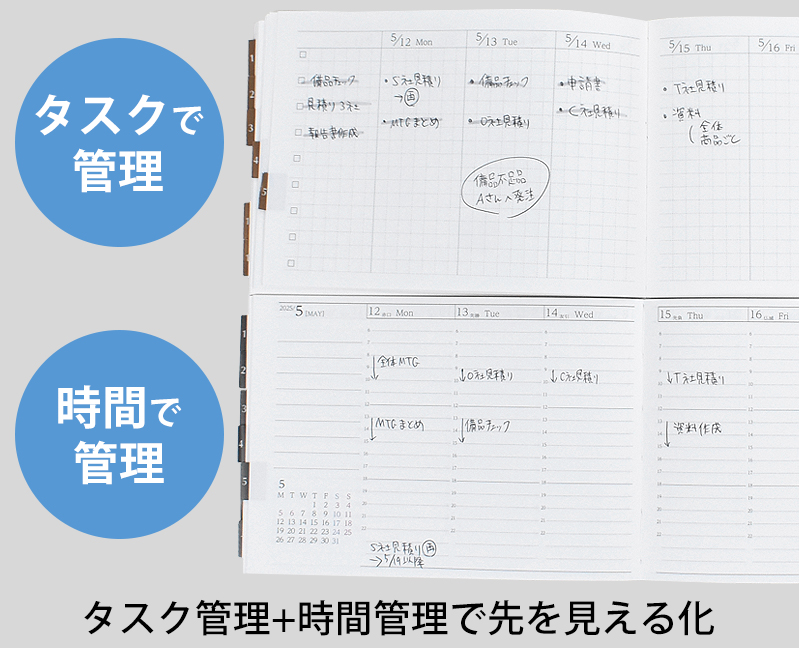 タスクで
管理
5/12 Mon
5/13 Tue
5/14 Wed
5/15 Thu
5/16 Fri
備品チェック
見積り3社
報告書作成
・S社見積り
→再
・MTGまとめ
・備品チェック
・O社見積り
備品不足品
Aさんへ発注
・申請書
・C社見積り
・T社見積り
・資料
全体
商品ごと
1
2
3
4
5
時間で
管理
2025/5 [MAY]
12 Mon
13 Tue
14 Wed
15 Thu
16 Fri
↓全体MTG
↓O社見積り
↓C社見積り
↓T社見積り
↓MTGまとめ
↓備品チェック
↓資料作成
1
2
3
4
5
5
M T W T F S S
1 2 3 4
5 6 7 8 9 10 11
12 13 14 15 16 17 18
19 20 21 22 23 24 25
26 27 28 29 30 31
S社見積り再
→5/19以降
タスク管理+時間管理で先を見える化